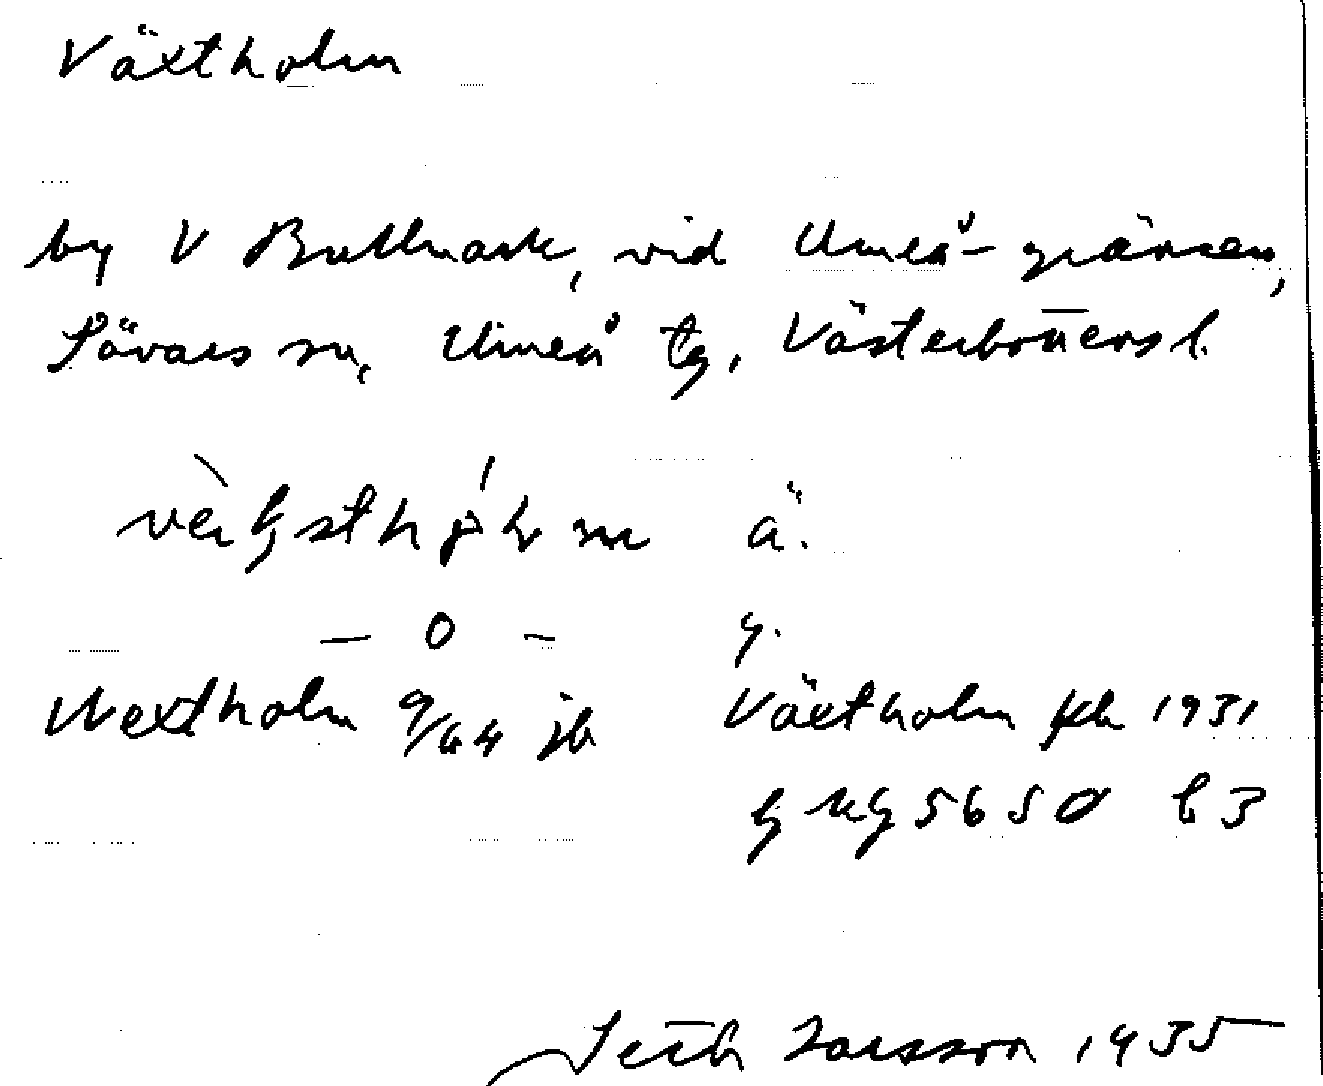 Växtholm
by V Bullmark, vid Umeå-gränsen,
Sävars sn, Umeå tg, Västerbottens l.
ä.
— o — y.
Wextholm 9/64 jb Växtholm jb 1931
5650 b3
Seth Larsson 1935